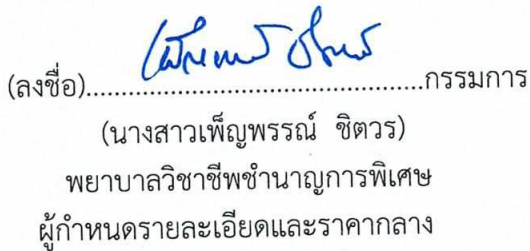 (ลงชื่อ)......................................................กรรมการ
(นางสาวเพ็ญพรรณ์ ชิตวร)
พยาบาลวิชาชีพชำนาญการพิเศษ
ผู้กำหนดรายละเอียดและราคากลาง